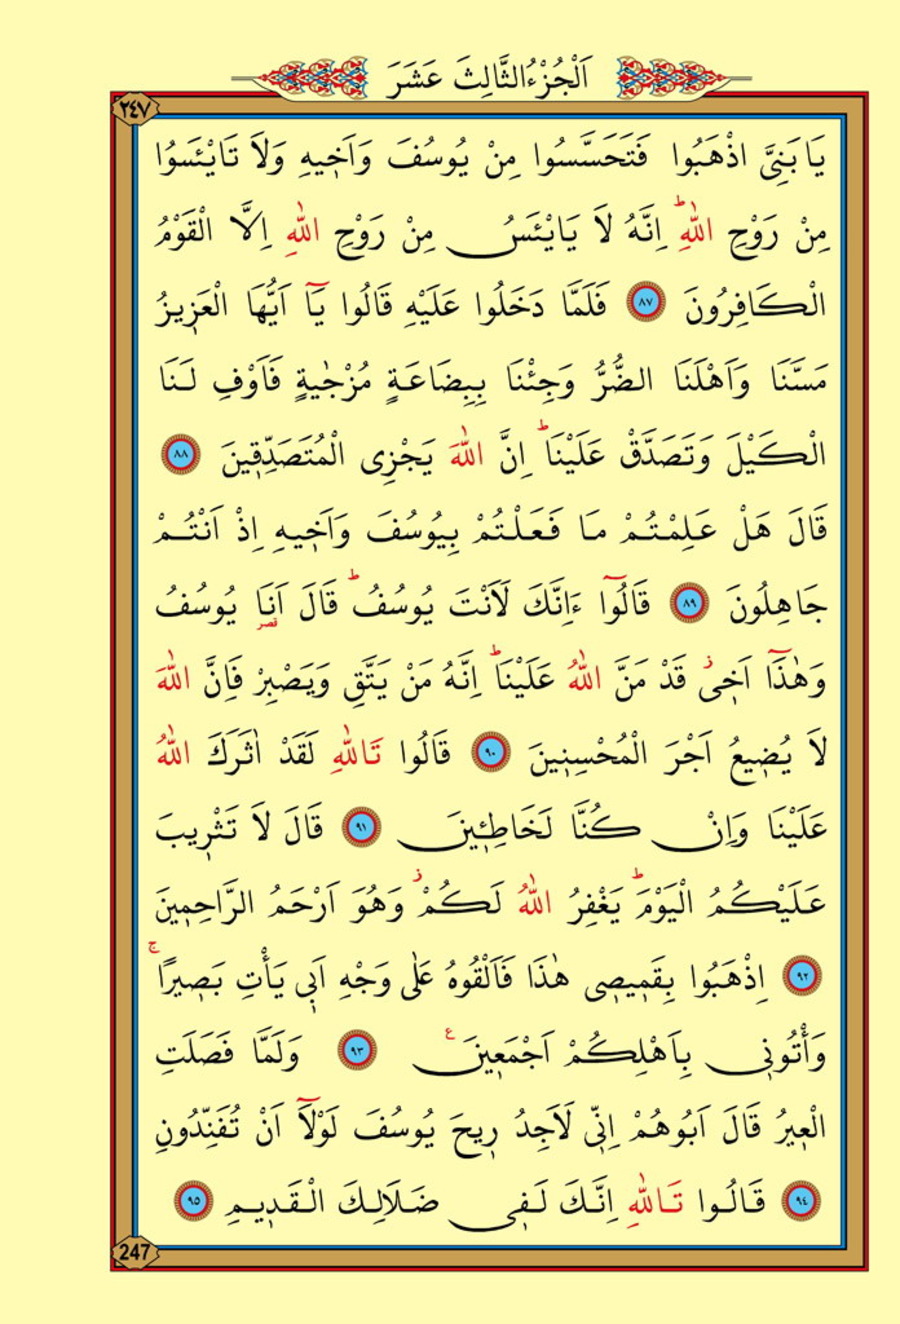 اَلْجُزْءُ الثَّالِثَ عَشَرَ
٢٤٧
يَا بَنِيَّ اذْهَبُوا فَتَحَسَّسُوا مِنْ يُوسُفَ وَاَخ۪يهِ وَلَا تَايْـَٔسُوا
مِنْ رَوْحِ اللّٰهِۜ اِنَّهُ لَا يَايْـَٔسُ مِنْ رَوْحِ اللّٰهِ اِلَّا الْقَوْمُ
الْكَافِرُونَ ﴿٨٧﴾ فَلَمَّا دَخَلُوا عَلَيْهِ قَالُوا يَٓا اَيُّهَا الْعَز۪يزُ
مَسَّنَا وَاَهْلَنَا الضُّرُّ وَجِئْنَا بِبِضَاعَةٍ مُزْجٰيةٍ فَاَوْفِ لَنَا
الْكَيْلَ وَتَصَدَّقْ عَلَيْنَاۜ اِنَّ اللّٰهَ يَجْزِي الْمُتَصَدِّق۪ينَ ﴿٨٨﴾
قَالَ هَلْ عَلِمْتُمْ مَا فَعَلْتُمْ بِيُوسُفَ وَاَخ۪يهِ اِذْ اَنْتُمْ
جَاهِلُونَ ﴿٨٩﴾ قَالُٓوا ءَاِنَّكَ لَاَنْتَ يُوسُفُۜ قَالَ اَنَا۬ يُوسُفُ
وَهٰذَٓا اَخ۪يۘ قَدْ مَنَّ اللّٰهُ عَلَيْنَاۜ اِنَّهُ مَنْ يَتَّقِ وَيَصْبِرْ فَاِنَّ اللّٰهَ
لَا يُض۪يعُ اَجْرَ الْمُحْسِن۪ينَ ﴿٩٠﴾ قَالُوا تَاللّٰهِ لَقَدْ اٰثَرَكَ اللّٰهُ
عَلَيْنَا وَاِنْ كُنَّا لَخَاطِـ۪ٔينَ ﴿٩١﴾ قَالَ لَا تَثْر۪يبَ
عَلَيْكُمُ الْيَوْمَۜ يَغْفِرُ اللّٰهُ لَكُمْۘ وَهُوَ اَرْحَمُ الرَّاحِم۪ينَ
﴿٩٢﴾ اِذْهَبُوا بِقَم۪يص۪ي هٰذَا فَاَلْقُوهُ عَلٰى وَجْهِ اَب۪ي يَأْتِ بَص۪يرًاۚ
وَأْتُون۪ي بِاَهْلِكُمْ اَجْمَع۪ينَ۟ ﴿٩٣﴾ وَلَمَّا فَصَلَتِ
الْع۪يرُ قَالَ اَبُوهُمْ اِنّ۪ي لَاَجِدُ ر۪يحَ يُوسُفَ لَوْلَٓا اَنْ تُفَنِّدُونِ
﴿٩٤﴾ قَالُوا تَاللّٰهِ اِنَّكَ لَف۪ي ضَلَالِكَ الْقَد۪يمِ ﴿٩٥﴾
247